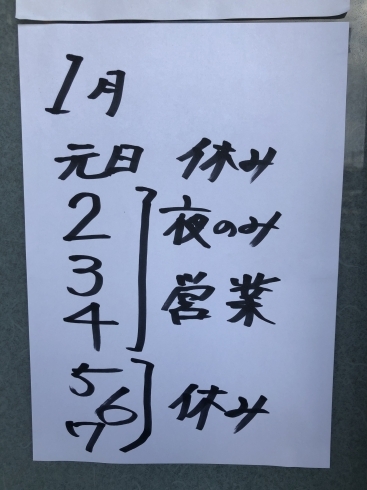 1月
元日 休み
2
3
4
夜のみ
営業
5
6
7
休み